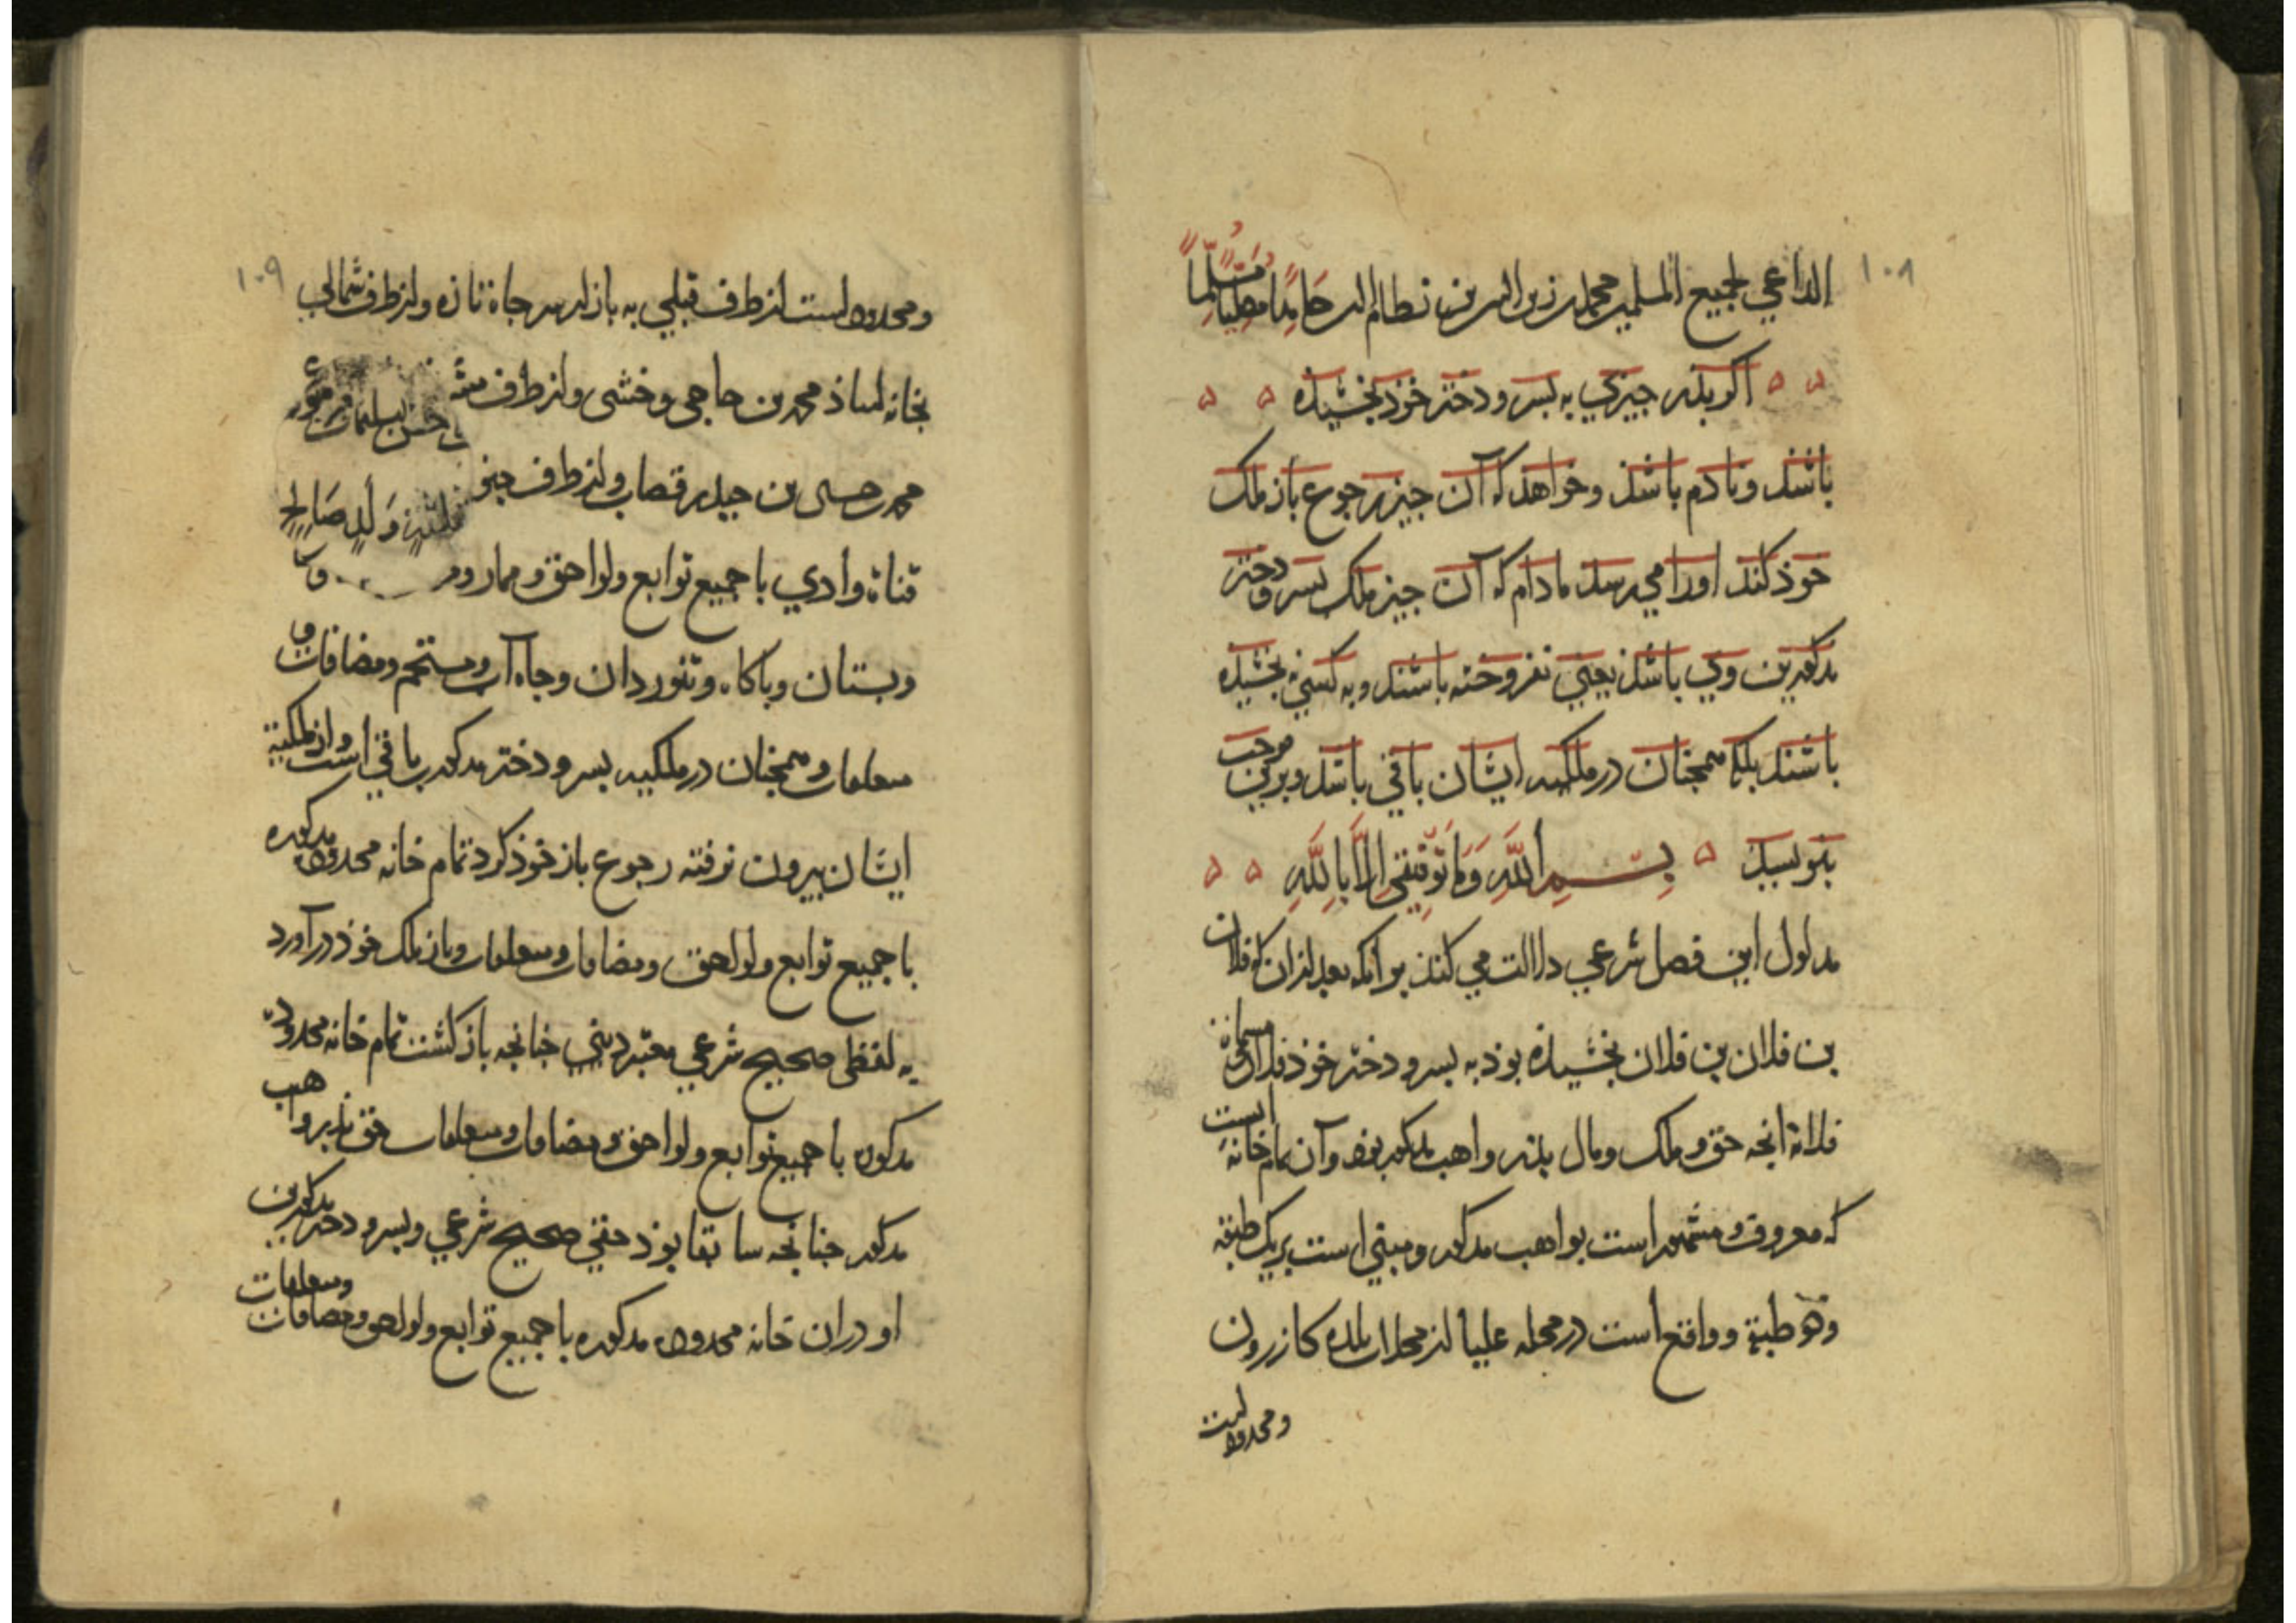 ۱۰۸
الداعي لجميع المسلمين محمد بن زين الدين بن نظام الدين حامدا مصليا مسلما
اكر بذر جيزي به بسر و دختر خوذ بخشيذه
باشذ و نادم باشذ و خواهذ كه آن جيز رجوع باز ملك
خوذ كند اورا مي رسد مادام كه آن جيز ملك بسر و دختر
مذكورين وي باشذ يعني نفروخته باشند و به كسي نه بخشيده
باشند بلكه همجنان در ملكيه ايشان باقي باشد و برين موجب
بنويسيد بسم الله وما توفيقي الا بالله
مدلول اين فصل شرعي دلالت مي كند بر آنكه بعد از ان كه فلان
بن فلان بن فلان بخشيذه بوذ به بسر و دختر خوذ فلان و مسماة
فلانة انجه حق و ملك و مال بذر واهب مذكور بوذ و آن تمام خانه است
كه معروف و مشهور است بواهب مذكور و مبني است بر يك طبقه
و دو طبقه و واقع است در محله عليا از محلات بلده كازرون
و محدوده است
۱۰۹
و محدوده است از طرف قبلي به بازار سر جاه تازه و از طرف شمالي
بخانه استاذ محمد بن حاجي و خشى و از طرف حسن بن سليمان
محمد حسن بن حيدر قصاب و از طرف ولد صالح
قناة وادي با جميع توابع و لواحق و ممار و
و بستان و باكاه و تنوردان و جاه آب و مستحم و مضافات و
متعلقات و همجنان در ملكيه بسر و دختر مذكورين باقي است و از ملكية
ايشان بيرون نرفته رجوع باز خوذ كرد تمام خانه محدوده مذكوره
با جميع توابع و لواحق و مضافات و متعلقات و باز ملك خوذ در آورد
به لفظى صحيح شرعي معتبر ديني جنانجه باز كشت تمام خانه محدودة
مذكوره با جميع توابع و لواحق و مضافات و متعلقات حق بذر واهب
مذكور جنانجه سابقا بوذ حقي صحيح شرعي و بسر و دختر مذكورين
او در ان خانه محدوده مذكوره با جميع توابع و لواحق و مضافات و متعلقات